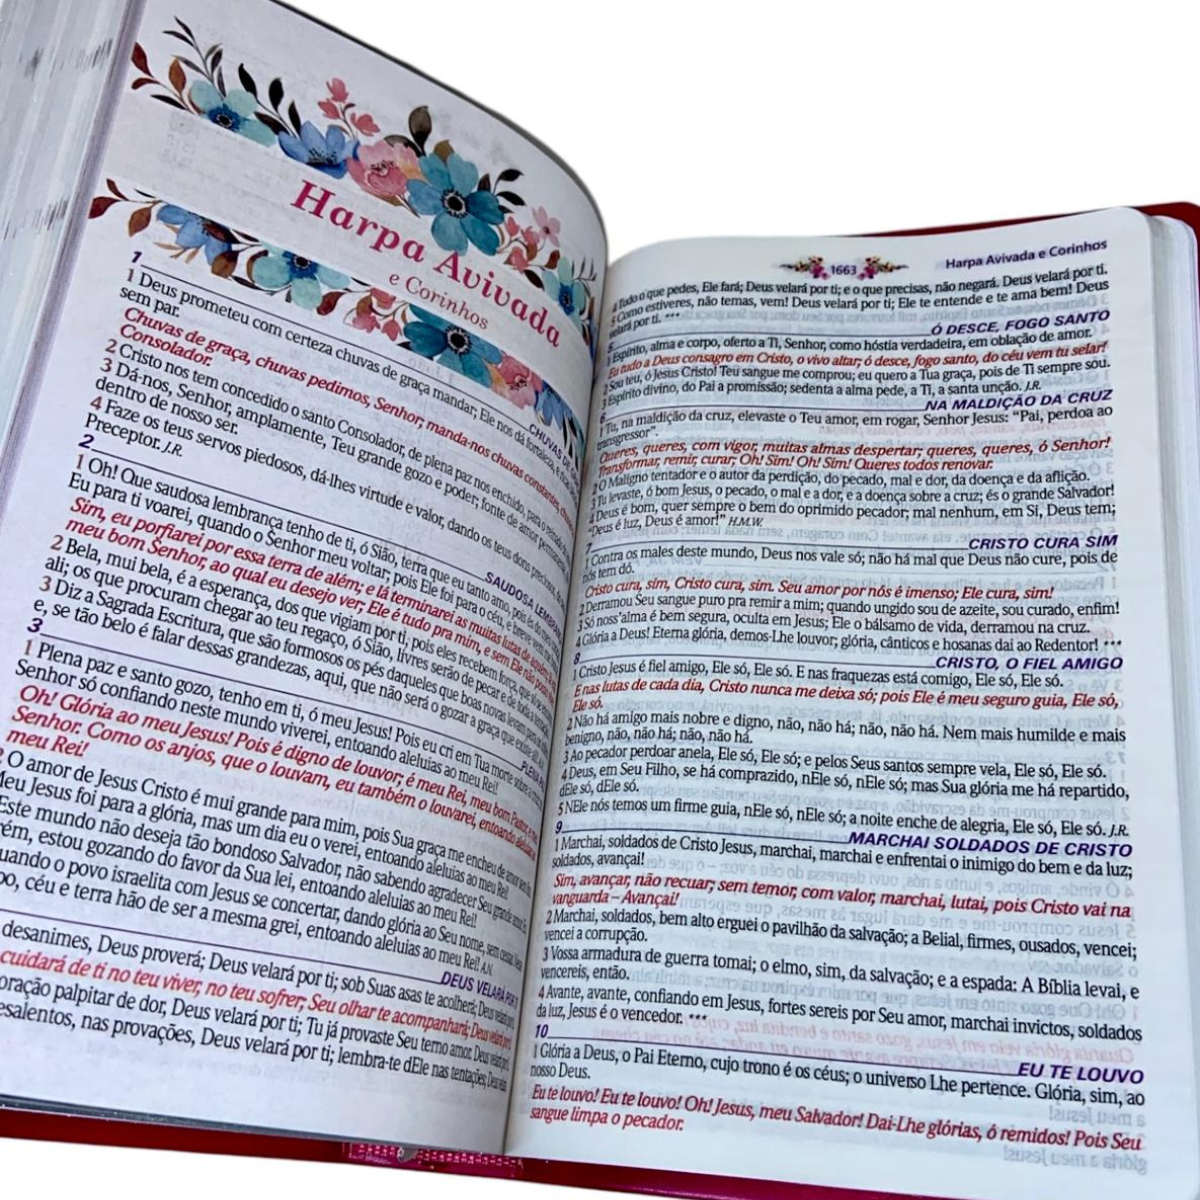 Harpa Avivada
e Corinhos
1
CHUVAS DE
1 Deus prometeu com certeza chuvas de graça mandar; Ele nos dá fortaleza, e
sem par.
Chuvas de graça, chuvas pedimos, Senhor; manda-nos chuvas constantes, chuvas
Consolador.
2 Cristo nos tem concedido o santo Consolador, de plena paz nos enchido, para o
3 Dá-nos, Senhor, amplamente, Teu grande gozo e poder; fonte de amor permanente
dentro de nosso ser.
4 Faze os teus servos piedosos, dá-lhes virtude e valor, dando os teus dons preciosos,
Preceptor. J.R.
2
SAUDOSA LEMBRANÇA
1 Oh! Que saudosa lembrança tenho de ti, ó Sião, terra que eu tanto amo, pois és do meu
Eu para ti voarei, quando o Senhor meu voltar; pois Ele foi para o céu, e breve vem
Sim, eu porfiarei por essa terra de além; e lá terminarei as muitas lutas de
meu bom Senhor, ao qual eu desejo ver; Ele é tudo pra mim, e sem Ele não posso
2 Bela, mui bela, é a esperança, dos que vigiam por ti; pois eles recebem força, que
ali; os que procuram chegar ao teu regaço, ó Sião, livres serão de pecar e de toda a
3 Diz a Sagrada Escritura, que são formosos os pés daqueles que boas novas levam
e, se tão belo é falar dessas grandezas, aqui, que não será o gozar a graça que existe
3
PLENA
1 Plena paz e santo gozo, tenho em ti, ó meu Jesus! Pois eu cri em Tua morte sobre a
Senhor só confiando neste mundo viverei, entoando aleluias ao meu Rei!
Oh! Glória ao meu Jesus! Pois é digno de louvor; é meu Rei, meu bom Pastor, e meu
Senhor. Como os anjos, que o louvam, eu também o louvarei, entoando aleluias ao
meu Rei!
2 O amor de Jesus Cristo é mui grande para mim, pois Sua graça me encheu de amor sem
Meu Jesus foi para a glória, mas um dia eu o verei, entoando aleluias ao meu Rei!
Este mundo não deseja tão bondoso Salvador, não sabendo agradecer Seu grande amor
estou gozando do favor da Sua lei, entoando aleluias ao meu Rei!
quando o povo israelita com Jesus se concertar, dando glória ao Seu nome, sem cessar
céu e terra hão de ser a mesma grei, entoando aleluias ao meu Rei! A.N.
DEUS VELARÁ POR
desanimes, Deus proverá; Deus velará por ti; sob Suas asas te acolherá; Deus velará
cuidará de ti no teu viver, no teu sofrer; Seu olhar te acompanhará; Deus velará
palpitar de dor, Deus velará por ti; Tu já provaste Seu terno amor. Deus velará
nas provações, Deus velará por ti; lembra-te dEle nas tentações; Deus
1663
Harpa Avivada e Corinhos
4 Tudo o que pedes, Ele fará; Deus velará por ti; e o que precisas, não negará. Deus velará por ti.
5 Como estiveres, não temas, vem! Deus velará por ti; Ele te entende e te ama bem! Deus
velará por ti. ***
5
Ó DESCE, FOGO SANTO
1 Espírito, alma e corpo, oferto a Ti, Senhor, como hóstia verdadeira, em oblação de amor.
Eu tudo a Deus consagro em Cristo, o vivo altar; ó desce, fogo santo, do céu vem tu selar!
2 Sou teu, ó Jesus Cristo! Teu sangue me comprou; eu quero a Tua graça, pois de Ti sempre sou.
3 Espírito divino, do Pai a promissão; sedenta a alma pede, a Ti, a santa unção. J.R.
6
NA MALDIÇÃO DA CRUZ
1 Tu, na maldição da cruz, elevaste o Teu amor, em rogar, Senhor Jesus: “Pai, perdoa ao
transgressor”.
Queres, queres, com vigor, muitas almas despertar; queres, queres, ó Senhor!
Transformar, remir, curar; Oh! Sim! Oh! Sim! Queres todos renovar.
2 O Maligno tentador e o autor da perdição, do pecado, mal e dor, da doença e da aflição.
3 Tu levaste, ó bom Jesus, o pecado, o mal e a dor, e a doença sobre a cruz; és o grande Salvador!
4 Deus é bom, quer sempre o bem do oprimido pecador; mal nenhum, em Si, Deus tem;
“Deus é luz, Deus é amor!” H.M.W.
7
CRISTO CURA SIM
1 Contra os males deste mundo, Deus nos vale só; não há mal que Deus não cure, pois de
nós tem dó.
Cristo cura, sim, Cristo cura, sim. Seu amor por nós é imenso; Ele cura, sim!
2 Derramou Seu sangue puro pra remir a mim; quando ungido sou de azeite, sou curado, enfim!
3 Só noss'alma é bem segura, oculta em Jesus; Ele o bálsamo de vida, derramou na cruz.
4 Glória a Deus! Eterna glória, demos-Lhe louvor; glória, cânticos e hosanas dai ao Redentor! ***
8
CRISTO, O FIEL AMIGO
1 Cristo Jesus é fiel amigo, Ele só, Ele só. E nas fraquezas está comigo, Ele só, Ele só.
E nas lutas de cada dia, Cristo nunca me deixa só; pois Ele é meu seguro guia, Ele só,
Ele só.
2 Não há amigo mais nobre e digno, não, não há; não, não há. Nem mais humilde e mais
benigno, não, não há; não, não há.
3 Ao pecador perdoar anela, Ele só, Ele só; e pelos Seus santos sempre vela, Ele só, Ele só.
4 Deus, em Seu Filho, se há comprazido, nEle só, nEle só; mas Sua glória me há repartido,
dEle só, dEle só.
5 NEle nós temos um firme guia, nEle só, nEle só; a noite enche de alegria, Ele só, Ele só. J.R.
9
MARCHAI SOLDADOS DE CRISTO
1 Marchai, soldados de Cristo Jesus, marchai, marchai e enfrentai o inimigo do bem e da luz;
soldados, avançai!
Sim, avançar, não recuar; sem temor, com valor, marchai, lutai, pois Cristo vai na
vanguarda – Avançai!
2 Marchai, soldados, bem alto erguei o pavilhão da salvação; a Belial, firmes, ousados, vencei;
vencei a corrupção.
3 Vossa armadura de guerra tomai; o elmo, sim, da salvação; e a espada: A Bíblia levai, e
vencereis, então.
4 Avante, avante, confiando em Jesus, fortes sereis por Seu amor, marchai invictos, soldados
da luz, Jesus é o vencedor. ***
10
EU TE LOUVO
1 Glória a Deus, o Pai Eterno, cujo trono é os céus; o universo Lhe pertence. Glória, sim, ao
nosso Deus.
Eu te louvo! Eu te louvo! Oh! Jesus, meu Salvador! Dai-Lhe glórias, ó remidos! Pois Seu
sangue limpa o pecador.